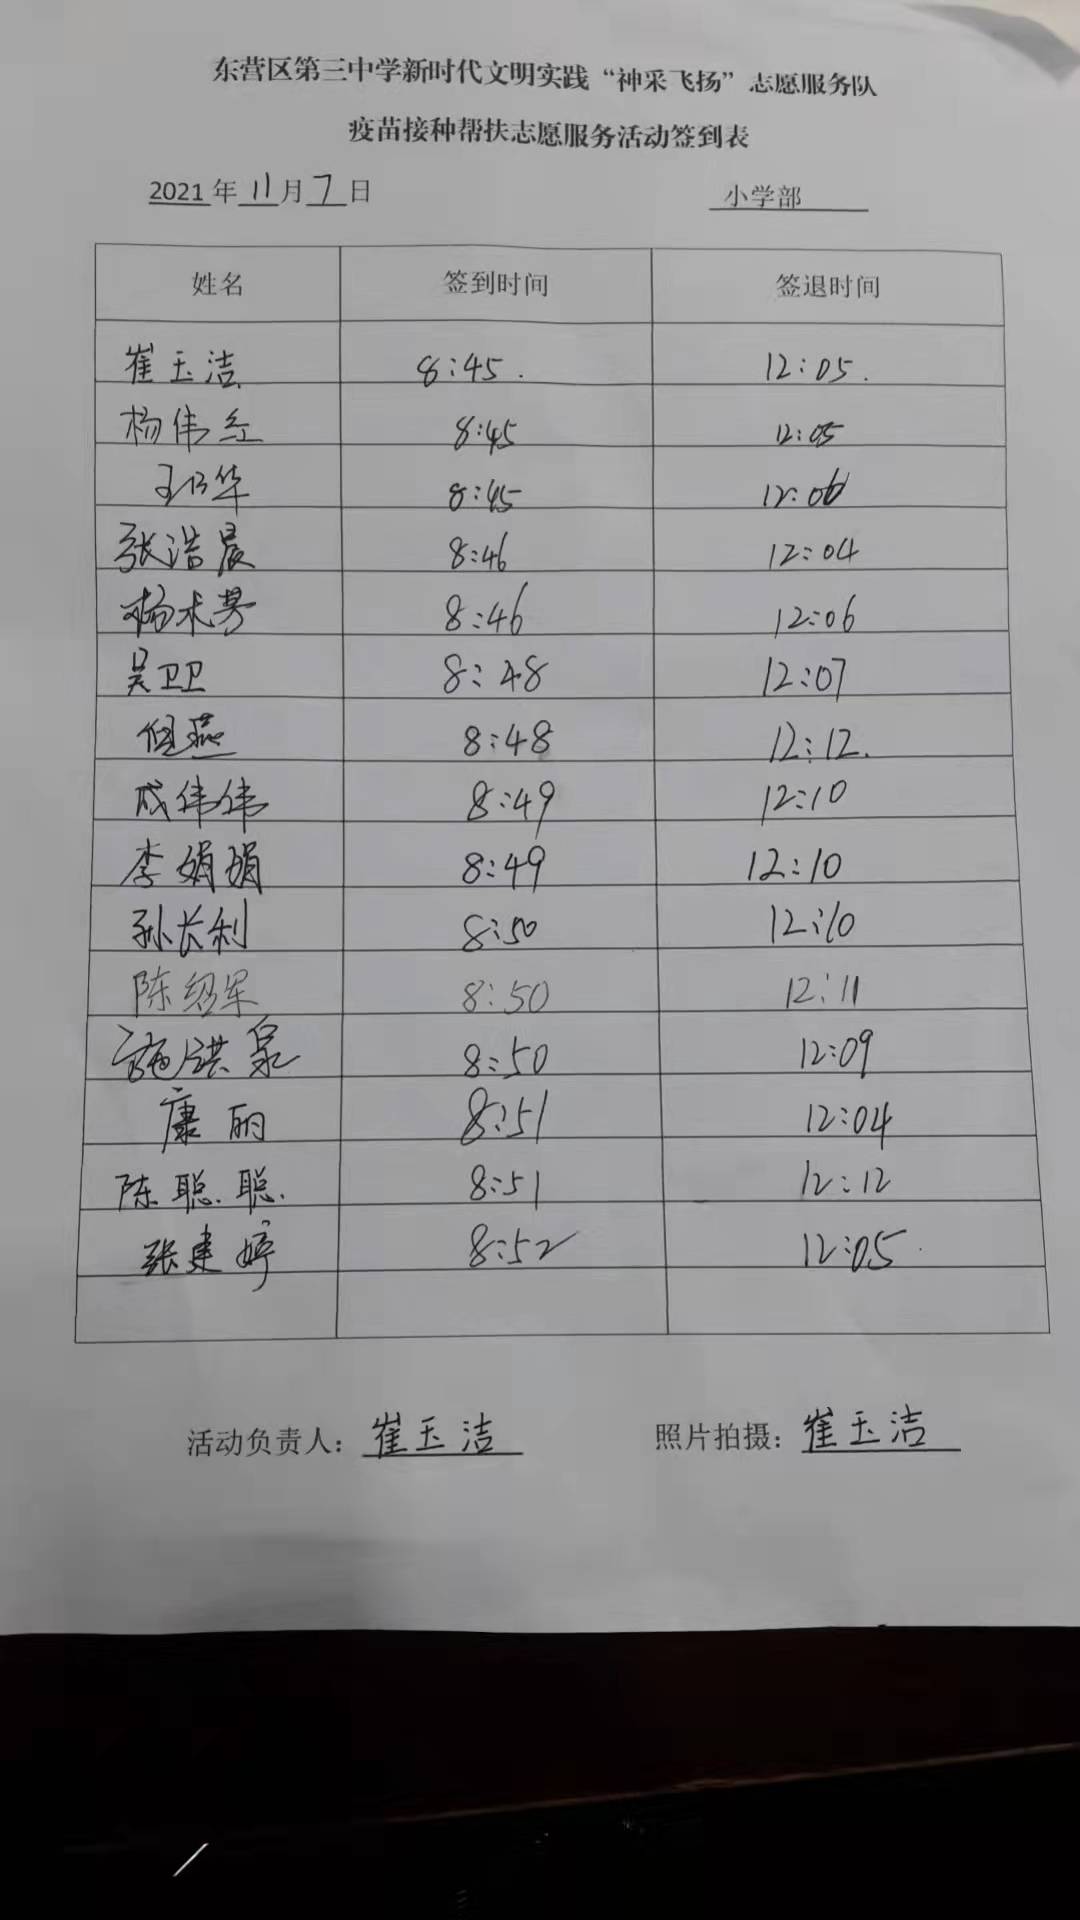 东营区第三中学新时代文明实践“神采飞扬”志愿服务队
疫苗接种帮扶志愿服务活动签到表
2021年11月7日 小学部
姓名 签到时间 签退时间
崔玉洁 8:45. 12:05.
杨伟红 8:45 12:05
王乃华 8:45 12:06
张浩晨 8:46 12:04
杨术芳 8:46 12:06
吴卫卫 8:48 12:07
燕 8:48 12:12.
成伟伟 8:49 12:10
李娟娟 8:49 12:10
孙长利 8:50 12:10
陈绍军 8:50 12:11
施洪泉 8:50 12:09
康丽 8:51 12:04
陈聪聪. 8:51 12:12
张建婷 8:52 12:05
活动负责人：崔玉洁 照片拍摄：崔玉洁